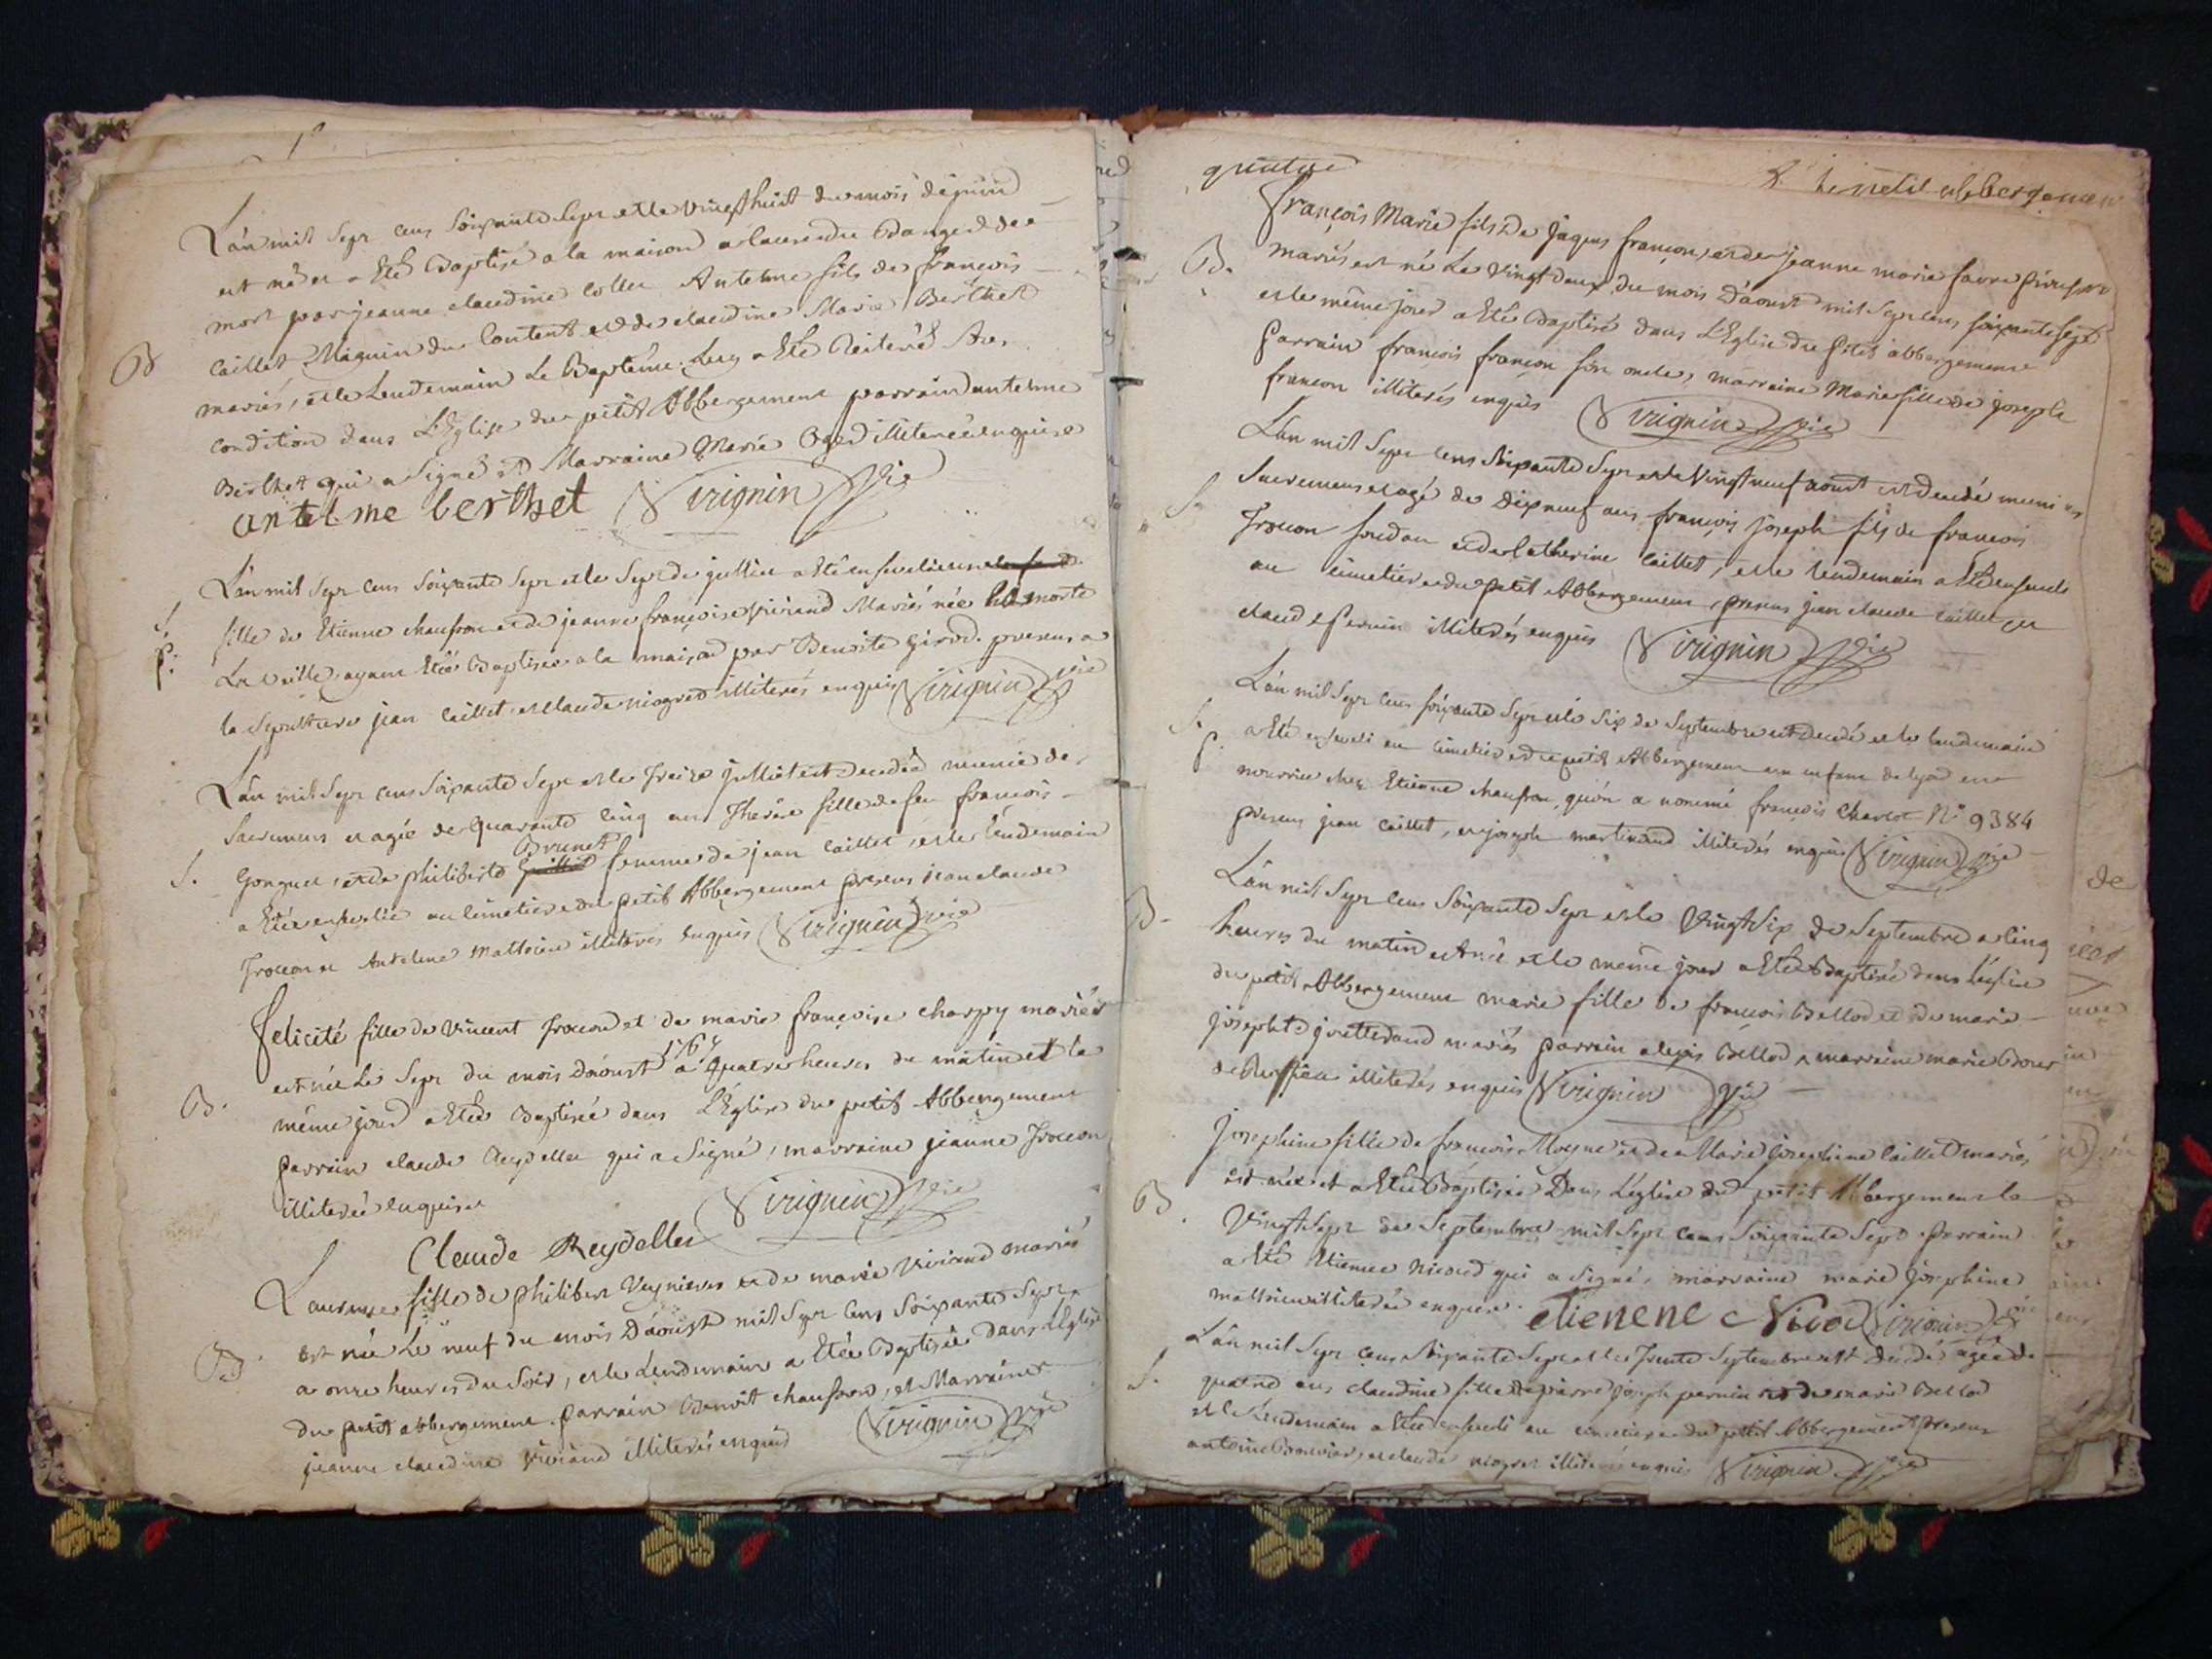 L'an mil sept cens soixante sept et le vingt huit du mois de juin
est né et a Eté Baptisé a la maison a cause du Danger de
mort par jeanne claudine Collet Antelme fils de françois
B
Caillet Maguin du Content et de claudine Marie Berthet
mariés, et le Lendemain Le Baptême Luy a Eté Reiteré sous
condition dans L'Eglise du petit Abbergement parrain antelme
Berthet qui a Signé et Marraine Marie Oger illiterée enquise
antelme berthet Virignin vic
L'an mil sept cens soixante sept et le sept de juillet a Eté ensevelie une
S.
P.
fille de Etienne chanfron et de jeanne françoise Pirand Mariés née et morte
La veille, ayant Eté Baptisée a la maison par Benoite Girod. presens a
la Sepulture jean Caillet et claude niogret illiterés enquis Virignin vic
L'an mil sept cens soixante sept et le Treize juillet est decedée munie des
Sacremens et agée de Quarante cinq ans Therese fille de feu françois
Brunet
S.
Gonguet et de philiberte femme de jean Caillet et le Lendemain
a Eté ensevelie au cimetiere du petit Abbergement presens jean claude
Trocon et Antelme Matthieu illiterés enquis Virignin vic
felicité fille de Vincent Trocon et de marie françoise charpy mariés
1767
est née Le Sept du mois D'aoust a quatre heures du matin et le
B.
même jour a Eté Baptisée dans L'Eglise du petit Abbergement
parrain claude Reydellet qui a Signé, marraine jeanne Trocon
illiterée enquise Virignin vic
Claude Reydellet
Laurence fille de philibert Veyrieres et de marie Pirand mariés
est née Le neuf du mois D'aoust mil Sept Cens Soixante Sept
B.
a onze heures du Soir, et le Lendemain a Eté Baptisée dans L'Eglise
du petit abbergement. parrain Benoit chanfron, et Marraine
jeanne claudine Pirand illiterés enquis Virignin vic
quatre
petit abbergement
françois Marie fils De jaques françon, et de jeanne marie favre
B.
mariés est né Le Vingt deux du mois D'aoust mil Sept cens soixante sept
et le même jour a Eté Baptisé dans L'Eglise du petit abbergement
Parrain françois françon son oncle, marraine Marie fille de joseph
françon illiterés enquis Virignin vic
L'an mil Sept cens soixante Sept et le Vingt neuf aoust est decedé muni des
S.
Sacremens et agé de dix neuf ans françois joseph fils de françois
Trocon et de Catherine Caillet, et le lendemain a Eté enseveli
au cimetiere du petit Abbergement, presens jean claude Caillet et
claude Pernin illiterés enquis Virignin vic
L'an mil Sept cens soixante Sept et le Six de Septembre est decedé et le lendemain
S.
P.
a Eté enseveli au cimetiere du petit Abbergement un enfant de lyon en
nourrice chez Etienne chanfron, qu'on a nommé françois Charlot N° 9384
presens jean Caillet, et joseph martinand illiterés enquis Virignin vic
L'an mil Sept cens Soixante Sept et le Vingt Six de Septembre a cinq
B.
heures du matin est née et le même jour a Eté Baptisée dans l'eglise
du petit Abbergement marie fille de françois Bellod et de marie
josephte mariés parrain alexis Bellod, marraine marie
illiterés enquis Virignin vic
josephine fille de françois Moyne et de Marie josephine Caillet mariés
est née et a Eté Baptisée Dans l'eglise du petit Abbergement le
B.
Vingt Sept de Septembre mil Sept cens Soixante Sept. parrain
a Eté Etienne Nicod qui a signé, marraine marie josephine
matthieu illiterée enquise. etienene Nicod Virignin vic
L'an mil Sept cens Soixante Sept et le Trente Septembre est decedée agée de
S.
quatre ans claudine fille de pierre joseph pernin et de marie Bellod
et le Lendemain a Eté ensevelie au cimetiere du petit Abbergement presens
antoine et claude niogret illiterés enquis Virignin vic